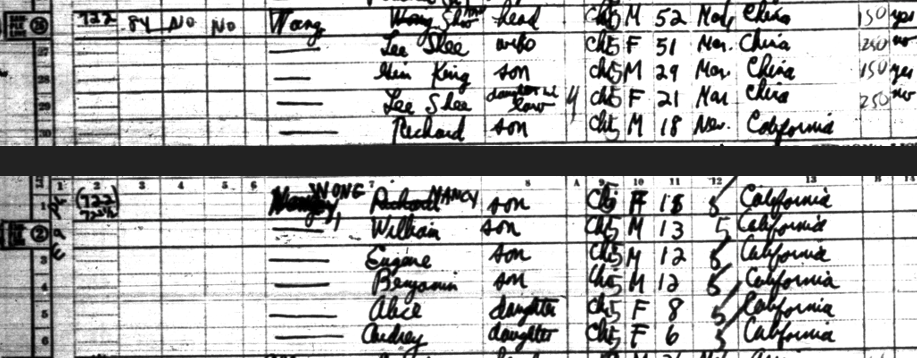 722 84 No No Wong Wong Shee head Ch 5 M 52 Mar China 150 yes
27 Lee Shee wife Ch 5 F 51 Mar. China 250 no
28 — King son Ch 5 M 29 Mar China 150 yes
29 — Lee Shee daughter in law 4 Ch 5 F 21 Mar China 250 no
30 — Richard son Ch 5 M 18 Nev. California
1 2 3 4 5 6 7 8 A 9 10 11 12 13 B
1 (722) WONG NANCY son Ch F 18 5 California
2 — William son Ch 5 M 13 5 California
3 — Eugene son Ch 5 M 12 California
4 — Benjamin son Ch 5 M 12 California
5 — Alice daughter Ch 5 F 8 5 California
6 — Audrey daughter Ch 5 F 6 5 California